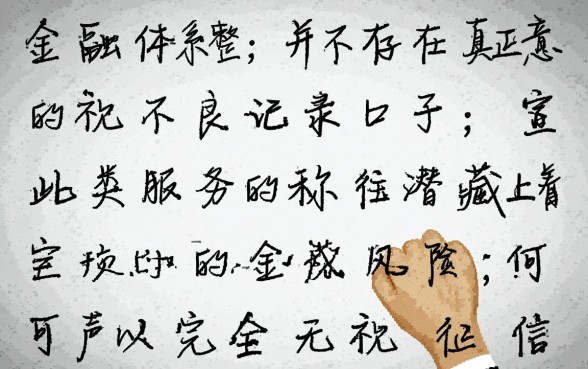 金融体系整；并不存在真正意
的祝不良记录口子；宣
此类服务的称往潜藏上着
的金 风险；何
可声以完全无祝征信